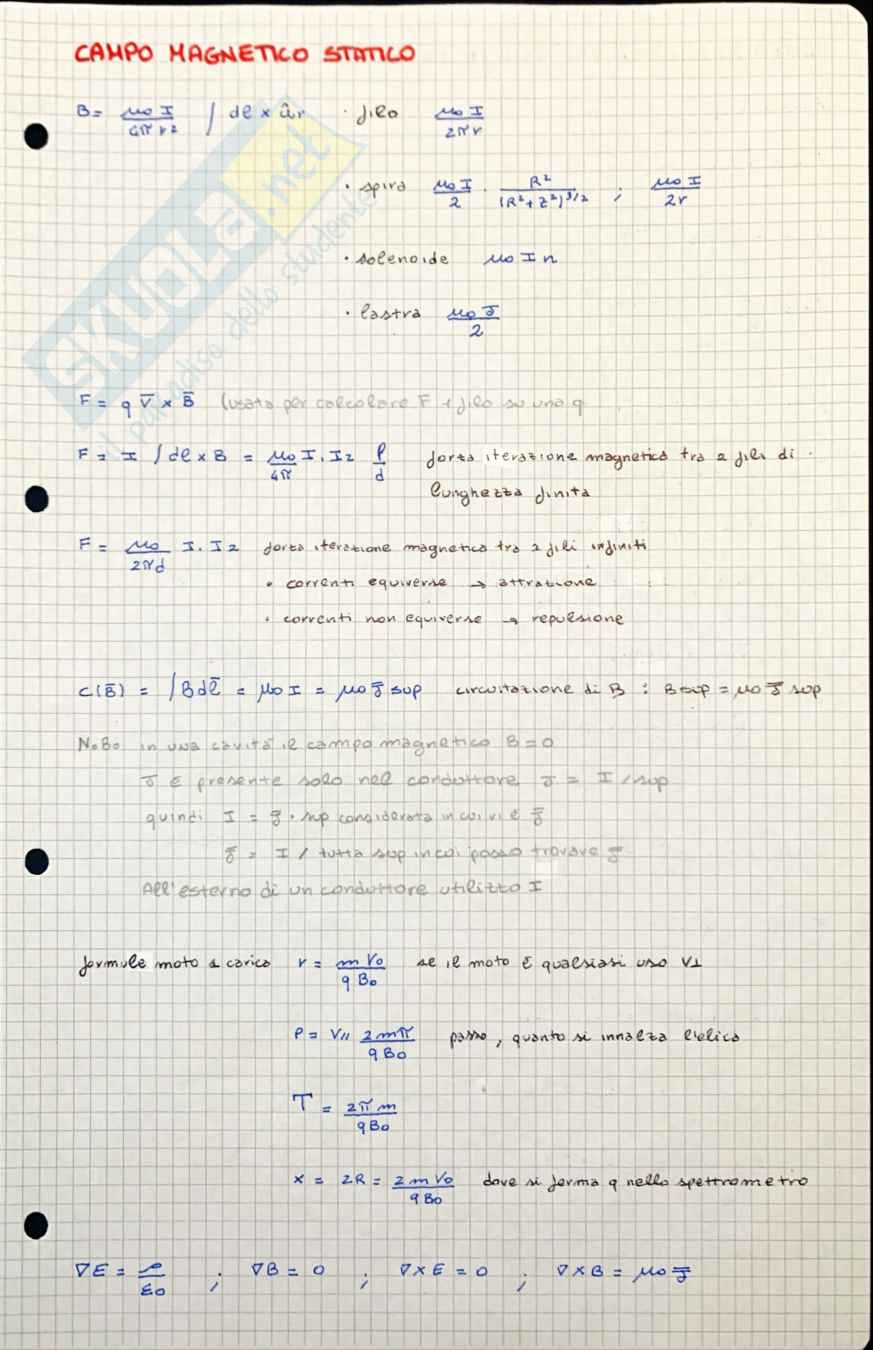 CAMPO MAGNETICO STATICO
B = μo I / 4π r² ∫ dl × âr · filo μo I / 2πr
· spira μo I / 2 · R² / (R²+Z²)^3/2 ; μo I / 2r
· solenoide μo I n
· lastra μo J / 2
SKUOLA.net
il paradiso dello studente
F = q V̄ × B̄ (usata per calcolare F 1 filo su una q
F = I ∫ dl × B = μo / 4π I₁ I₂ l / d forza iterazione magnetica tra 2 fili di
lunghezza finita
F = μo / 2πd I₁ I₂ forza iterazione magnetica tra 2 fili infiniti
· correnti equiverse → attrazione
· correnti non equiverse → repulsione
C(B̄) = ∫ B dl̄ = μo I = μo J̄ sup circuitazione di B : B sup = μo J̄ sup
N.B. in una cavità il campo magnetico B = 0
J è presente solo nel conduttore J = I / sup
quindi I = J̄ · sup considerata in cui vi è J̄
J̄ = I / tutta sup in cui posso trovare J
All'esterno di un conduttore utilizzo I
formule moto 1 carica r = m Vo / q Bo se il moto è qualsiasi uso V⊥
P = V// 2mπ / q Bo passo, quanto si innalza l'elica
T = 2π m / q Bo
x = 2R = 2 m Vo / q Bo dove si ferma q nello spettrometro
∇E = ρ / εo ; ∇B = 0 ; ∇×E = 0 ; ∇×B = μo J̄